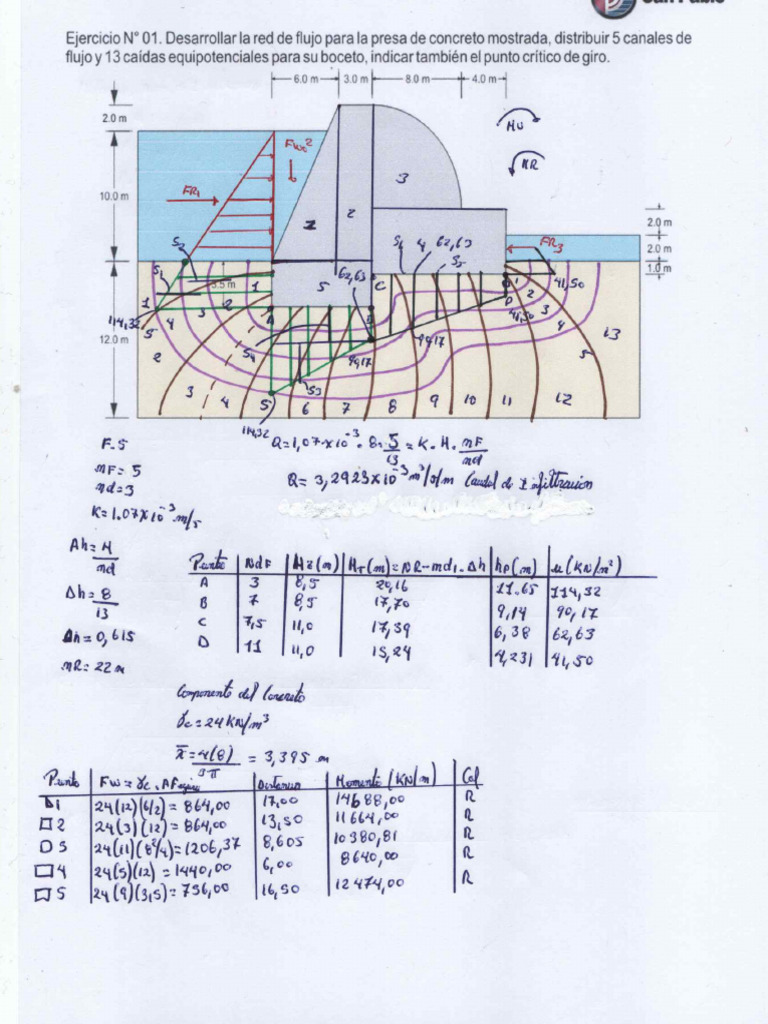 San Pablo
Ejercicio N° 01. Desarrollar la red de flujo para la presa de concreto mostrada, distribuir 5 canales de
flujo y 13 caídas equipotenciales para su boceto, indicar también el punto crítico de giro.
6.0 m 3.0 m 8.0 m 4.0 m
2.0 m
10.0 m
12.0 m
3.5 m
2.0 m
2.0 m
1.0 m
MU
MR
FR1
FW2
FR3
1 2 3
S2 S1 4 62,63
S1 1 5 62,63 S5 C 1
A B D 2 41,50
1 2 3 4 5 41,50 3 4 5 13
114,32 S4 90,17 90,17
2 S3
3 4 5 6 7 8 9 10 11 12
114,32
F.S
nF = 5
nd = 3
K = 1.07x10⁻³ m/s
Q = 1,07x10⁻³ . 8 = 5/13 = K . H . nF/nd
Q = 3,2923x10⁻³ m³/s/m Caudal de infiltracion
Δh = H/nd
Δh = 8/13
Δh = 0,615
NR = 22 m
Punto NdF Hz(m) HT(m) = NR - nd1 . Δh hp(m) u(KN/m²)
A 3 8,5 20,16 11.65 114,32
B 7 8,5 17,70 9,14 90,17
C 7,5 11,0 17,39 6,38 62,63
D 11 11,0 15,24 4,231 41,50
Componente del Concreto
γc = 24 KN/m³
x̄ = 4(8)/3π = 3,395 m
Punto Fw = γc . A Figura Distancia Momento (KN/m) Col
1 24(12)(6/2) = 864,00 17,00 14688,00 R
2 24(3)(12) = 864,00 13,50 11664,00 R
3 24(11)(8²/4) = 1206,37 8,605 10380,81 R
4 24(5)(12) = 1440,00 6,00 8640,00 R
5 24(9)(3,5) = 756,00 16,50 12474,00 R